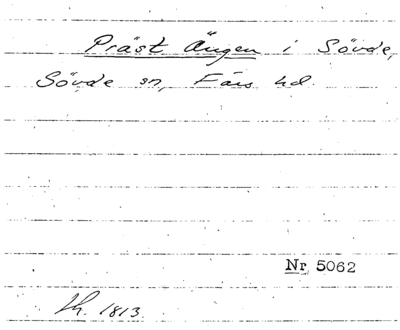 Präst Ängen i Sövde,
Sövde sn, Färs hd.
Nr 5062
1813